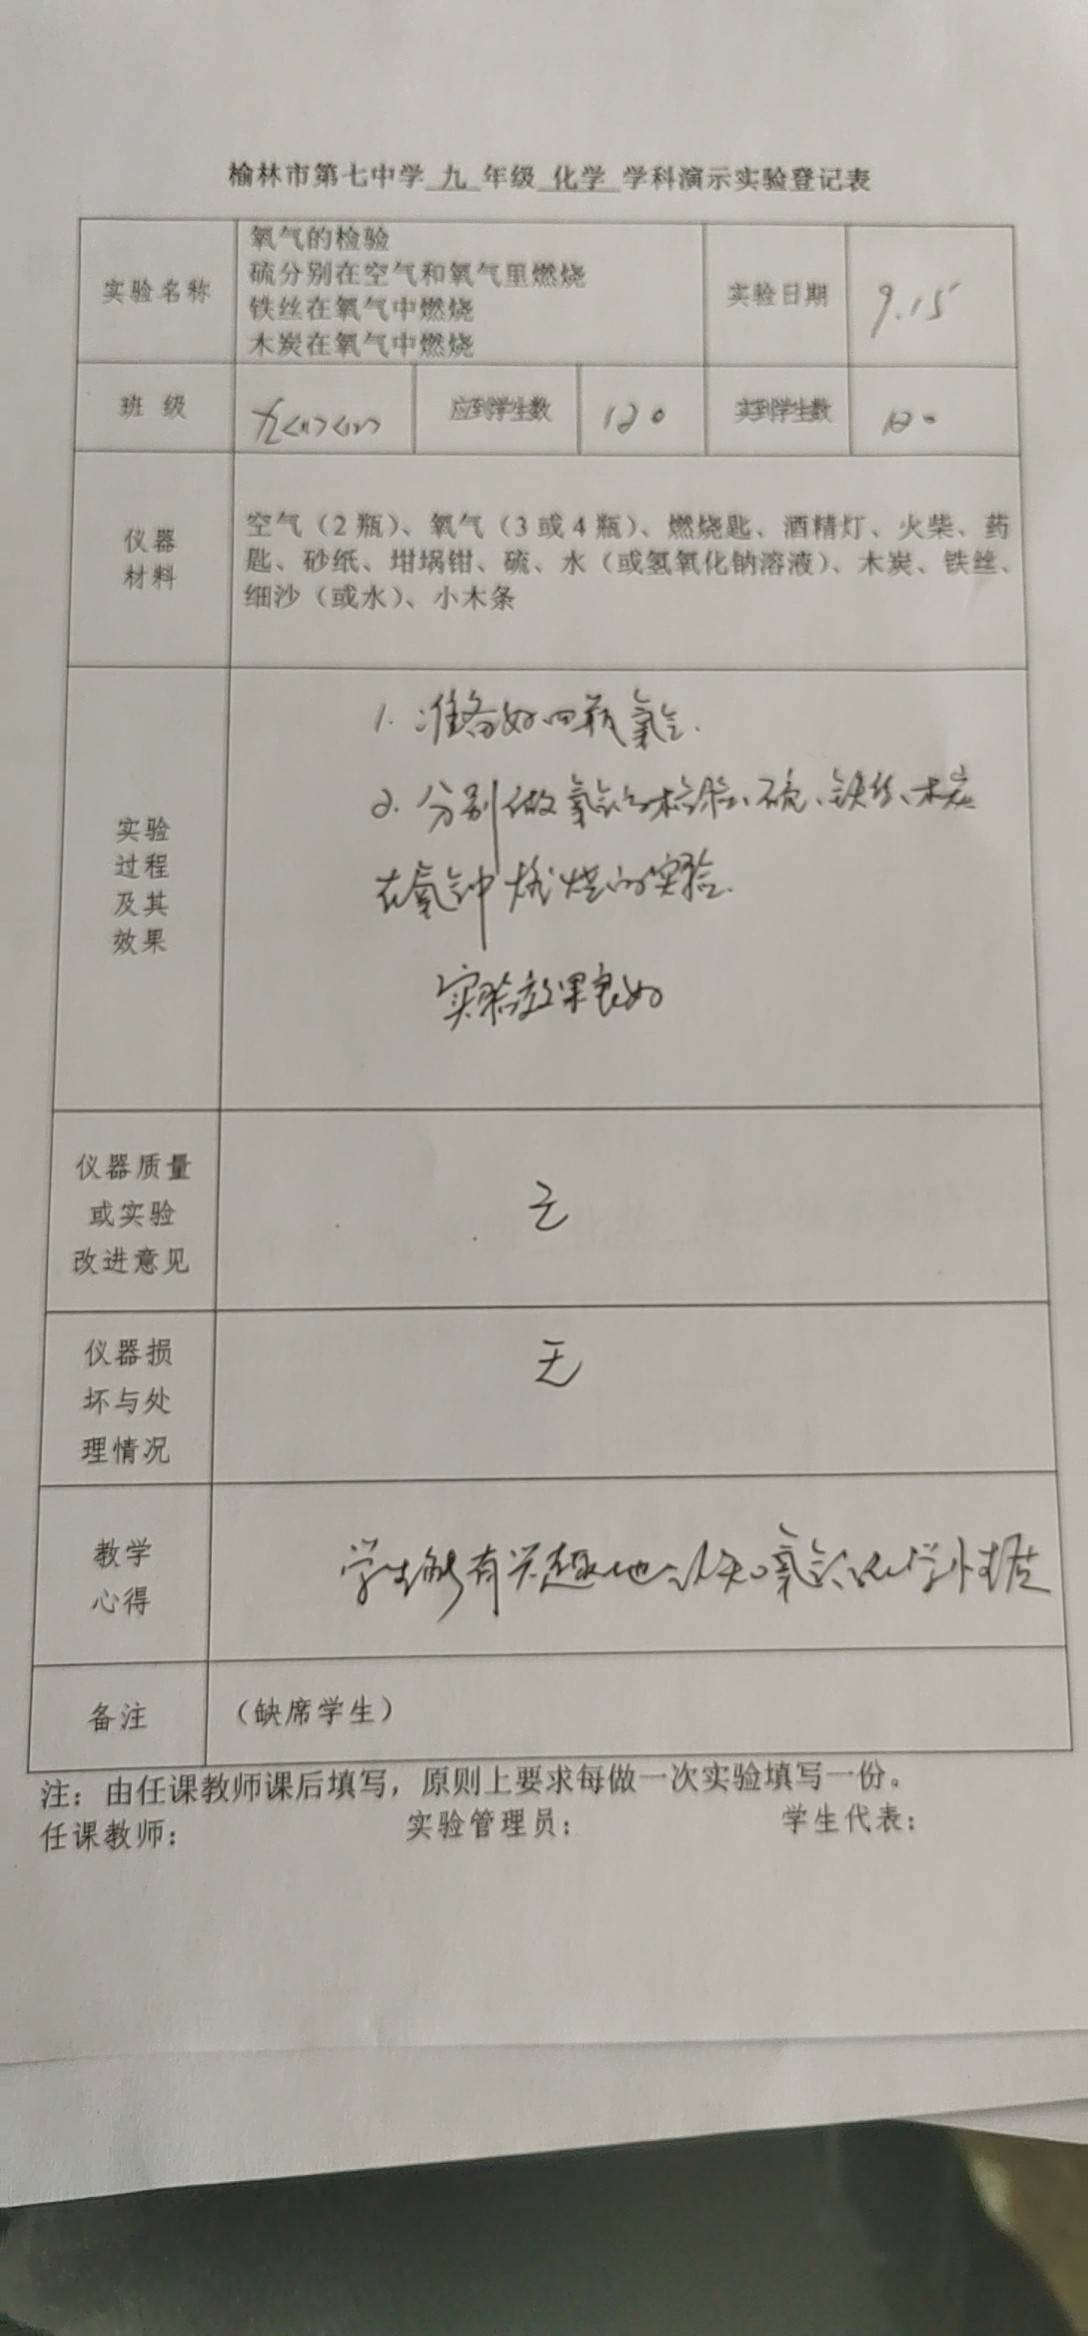 榆林市第七中学 九 年级 化学 学科演示实验登记表
实验名称
氧气的检验
硫分别在空气和氧气里燃烧
铁丝在氧气中燃烧
木炭在氧气中燃烧
实验日期
9.15
班 级
九<11><12>
应到学生数
120
实到学生数
120
仪器
材料
空气（2 瓶）、氧气（3 或 4 瓶）、燃烧匙、酒精灯、火柴、药
匙、砂纸、坩埚钳、硫、水（或氢氧化钠溶液）、木炭、铁丝、
细沙（或水）、小木条
实验
过程
及其
效果
1. 准备好四瓶氧气.
2. 分别做氧气的检验、硫、铁丝、木炭
在氧气中燃烧的实验.
实验效果良好
仪器质量
或实验
改进意见
无
仪器损
坏与处
理情况
无
教学
心得
学生能有兴趣地认知氧气的化学性质
备注
（缺席学生）
注：由任课教师课后填写，原则上要求每做一次实验填写一份。
任课教师：
实验管理员：
学生代表：